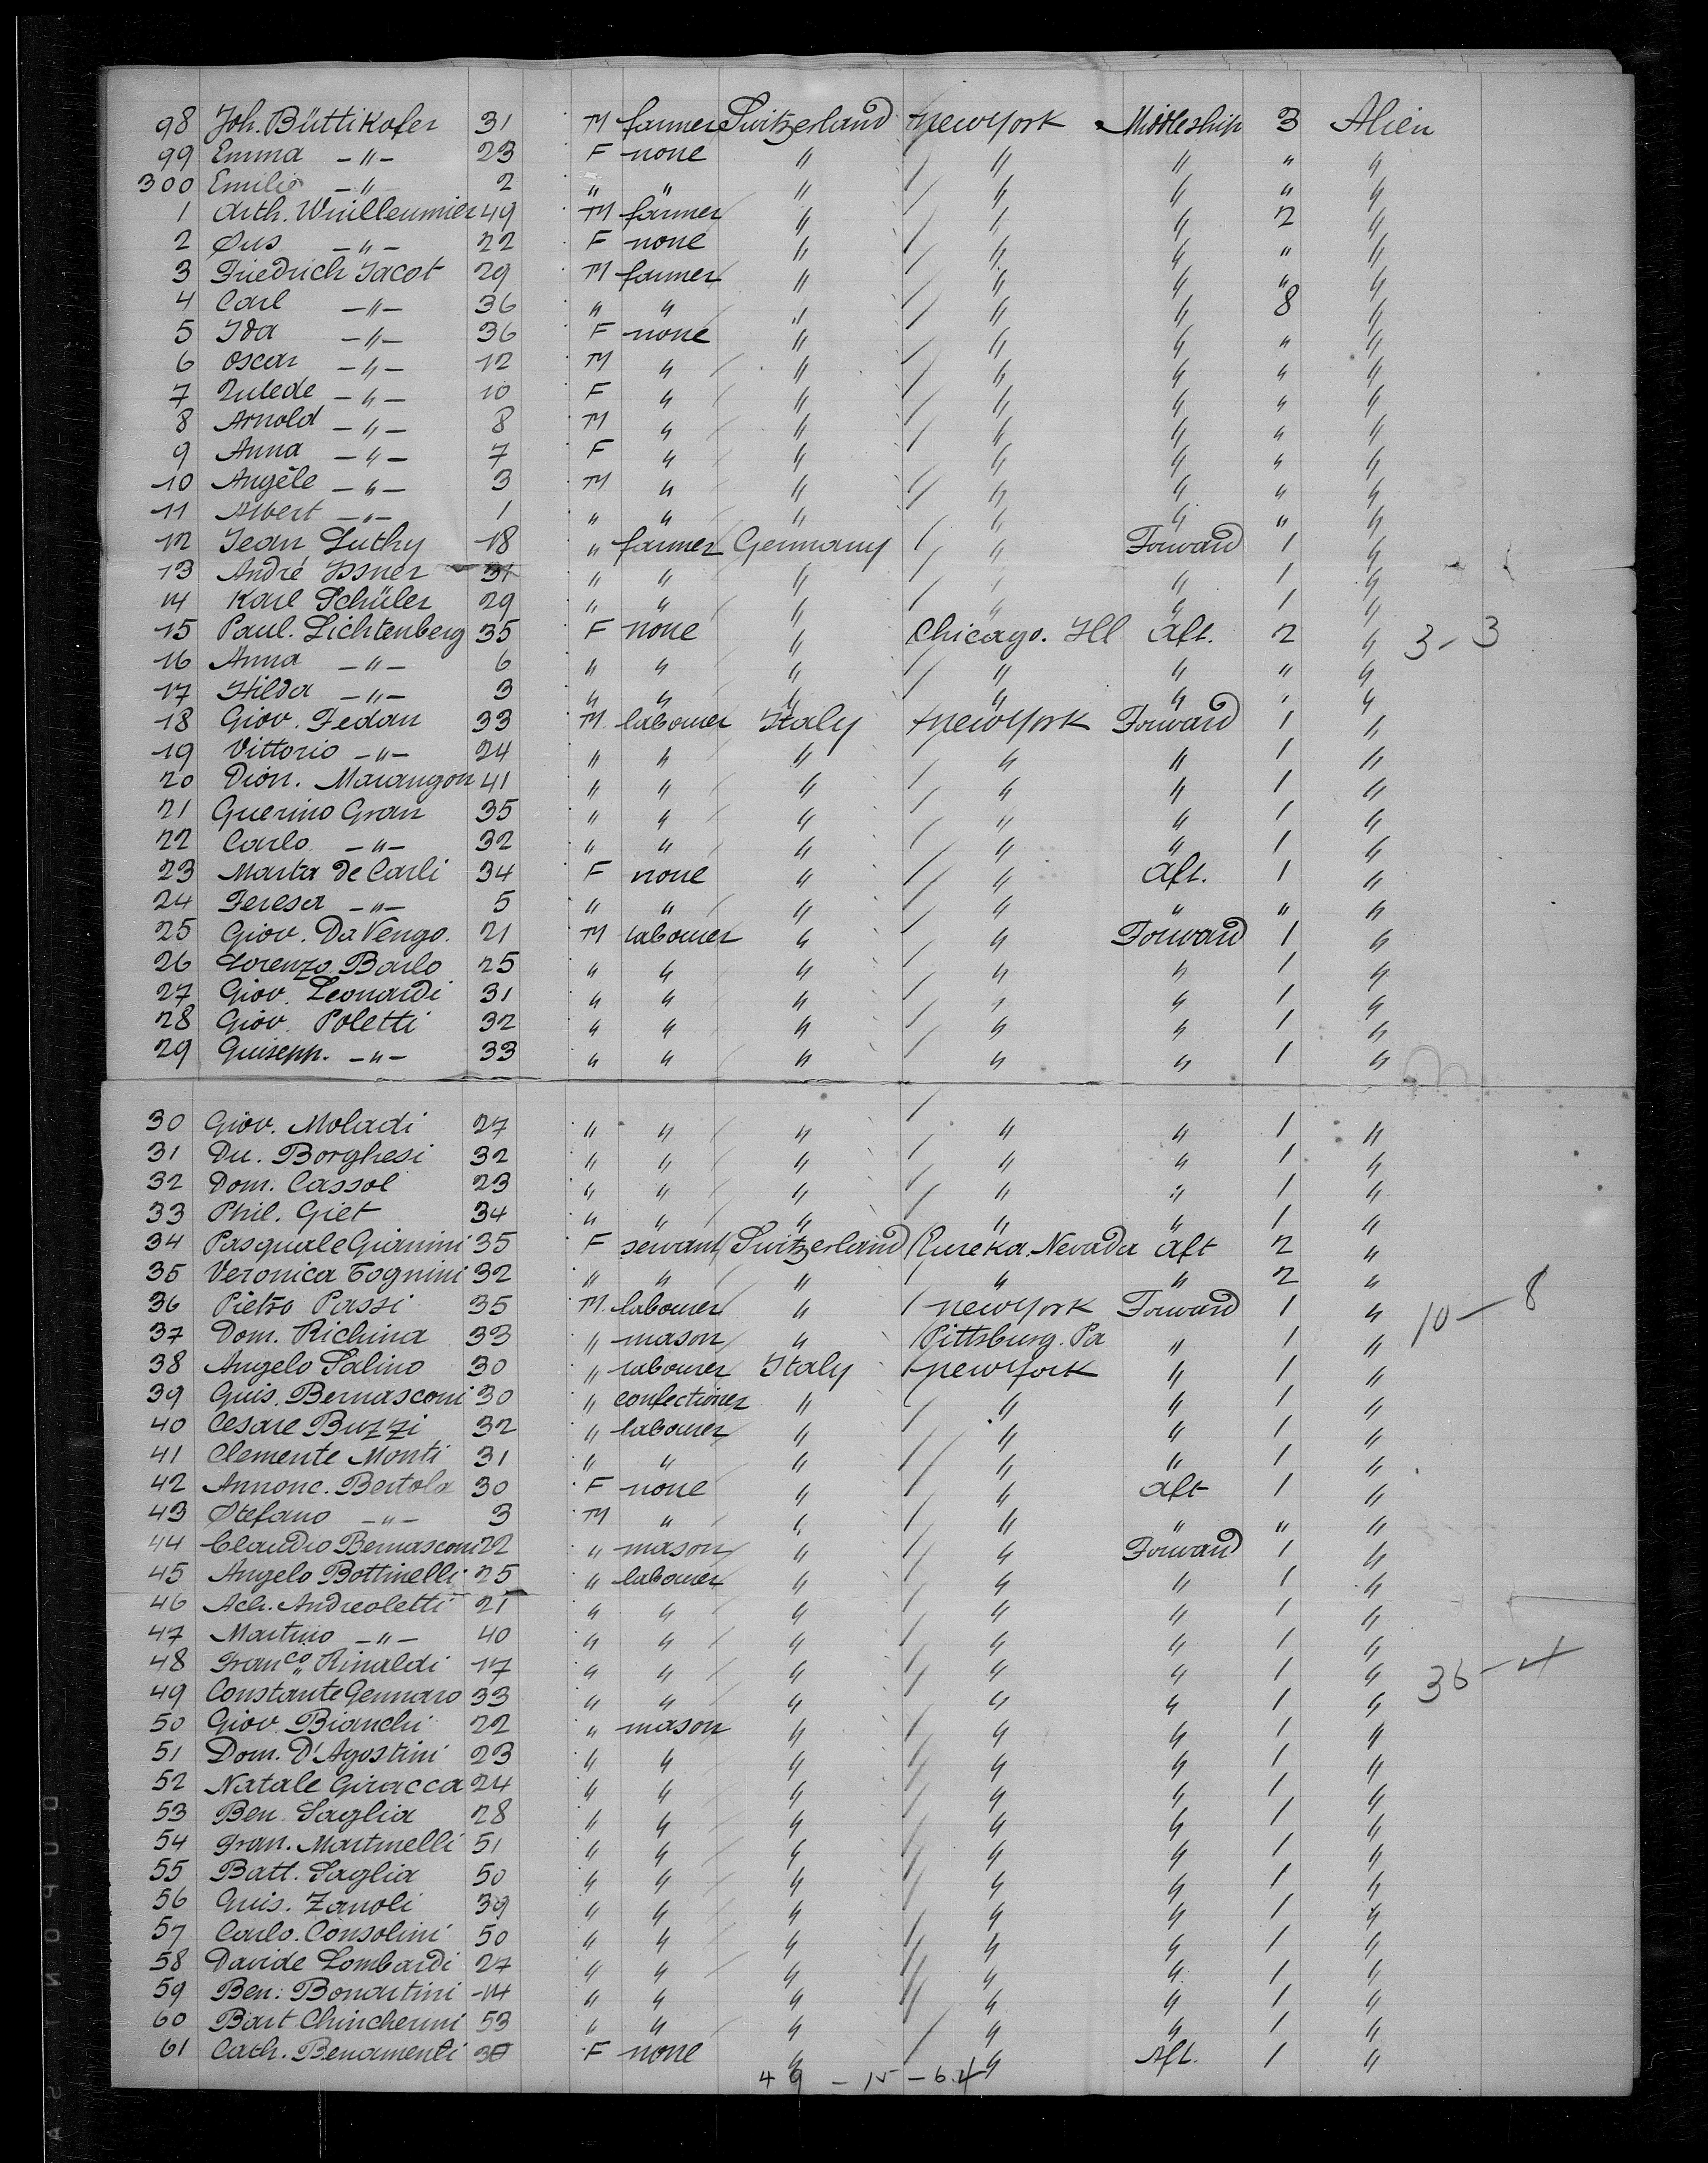 98 Joh. Büttikofer 31 M farmer Switzerland New York Middleship 3 Alien
99 Emma -"- 23 F none " " " " "
300 Emilie -"- 2 " " " " " " "
1 Arth. Wuilleumier 49 M farmer " " " 2 "
2 Øus -"- 22 F none " " " " "
3 Friedrich Jacot 29 M farmer " " " " "
4 Carl -"- 36 " " " " " 8 "
5 Ida -"- 36 F none " " " " "
6 Oscar -"- 12 M " " " " " "
7 Zulede -"- 10 F " " " " " "
8 Arnold -"- 8 M " " " " " "
9 Anna -"- 7 F " " " " " "
10 Angèle -"- 3 M " " " " " "
11 Albert -"- 1 " " " " " " "
12 Jean Luthy 18 " farmer Germany " Forward 1 "
13 André Issner 31 " " " " " 1 "
14 Karl Schüler 29 " " " " " 1 "
15 Paul. Lichtenberg 35 F none " Chicago. Ill Aft. 2 " 3-3
16 Anna -"- 6 " " " " " " "
17 Hilda -"- 3 " " " " " " "
18 Giov. Fedan 33 M. labourer Italy New York Forward 1 "
19 Vittorio -"- 24 " " " " " 1 "
20 Dion. Marangon 41 " " " " " 1 "
21 Guerino Gran 35 " " " " " 1 "
22 Carlo -"- 32 " " " " " 1 "
23 Marta De Carli 34 F none " " Aft. 1 "
24 Teresa -"- 5 " " " " " " "
25 Giov. Da Vengo. 21 M labourer " " Forward 1 "
26 Lorenzo Barlo 25 " " " " " 1 "
27 Giov. Leonardi 31 " " " " " 1 "
28 Giov. Poletti 32 " " " " " 1 "
29 Guisepp. -"- 33 " " " " " 1 "
30 Giov. Moladi 27 " " " " " 1 "
31 Du. Borghesi 32 " " " " " 1 "
32 Dom. Cassol 23 " " " " " 1 "
33 Phil. Giet 34 " " " " " 1 "
34 Pasquale Gianini 35 F servant Switzerland Eureka. Nevada Aft 2 "
35 Veronica Tognini 32 " " " " " 2 "
36 Pietro Passi 35 M. labourer " New York Forward 1 " 10-8
37 Dom. Richina 33 " mason " Pittsburg. Pa " 1 "
38 Angelo Salino 30 " labourer Italy New York " 1 "
39 Guis. Bernasconi 30 " confectioner " " " 1 "
40 Cesare Buzzi 32 " labourer " " " 1 "
41 Clemente Monti 31 " " " " " 1 "
42 Annonc. Bertola 30 F none " " Aft 1 "
43 Stefano -"- 3 M " " " " " "
44 Claudio Bernasconi 22 " mason " " Forward 1 "
45 Angelo Bottinelli 25 " labourer " " " 1 "
46 Ach. Andreoletti 21 " " " " " 1 "
47 Martino -"- 40 " " " " " 1 "
48 Franco Rinaldi 17 " " " " " 1 " 36-4
49 Constante Gennaro 33 " " " " " 1 "
50 Giov. Bianchi 22 " mason " " " 1 "
51 Dom. D'Agostini 23 " " " " " 1 "
52 Natale Giracca 24 " " " " " 1 "
53 Ben. Saglia 28 " " " " " 1 "
54 Fran. Martinelli 51 " " " " " 1 "
55 Batt. Saglia 50 " " " " " 1 "
56 Guis. Zanoli 39 " " " " " 1 "
57 Carlo. Consolini 50 " " " " " 1 "
58 Davide Lombardi 27 " " " " " 1 "
59 Ben. Bonartini 14 " " " " " 1 "
60 Bart Chincherini 53 " " " " " 1 "
61 Cath. Benamenti 30 F none " " Aft. 1 "
49 - 15 - 64